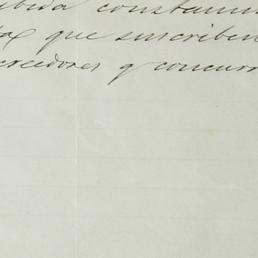 ibida constan
que suscriben
creedores q concurr